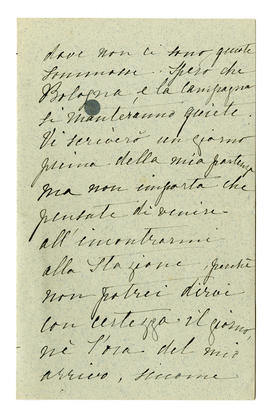 dove non ci sono queste
sommosse. Spero che
Bologna, e la campagna
si manteranno quiete.
Vi scriverò un giorno
prima della mia partenza
ma non importa che
pensate di venire
all'incontrarmi
alla Stazione, perché
non potrei dirvi
con certezza il giorno,
nè l'ora del mio
arrivo, siccome